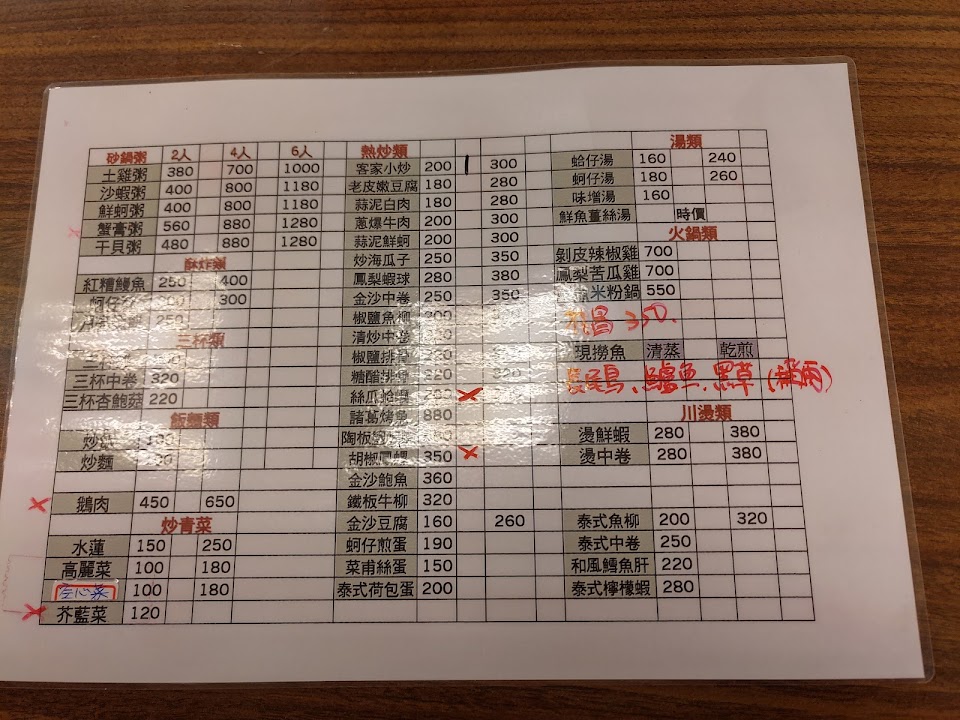 砂鍋粥 2人 4人 6人
土雞粥 380 700 1000
沙蝦粥 400 800 1180
鮮蚵粥 400 800 1180
蟹膏粥 560 880 1280
干貝粥 480 880 1280
酥炸類
紅糟鰻魚 250 400
蚵仔 300
250
三杯類
三杯中卷 320
三杯杏鮑菇 220
飯麵類
炒飯
炒麵
鵝肉 450 650
炒青菜
水蓮 150 250
高麗菜 100 180
空心菜 100 180
芥藍菜 120
熱炒類
客家小炒 200 300
老皮嫩豆腐 180 280
蒜泥白肉 180 280
蔥爆牛肉 200 300
蒜泥鮮蚵 200 300
炒海瓜子 250 350
鳳梨蝦球 280 380
金沙中卷 250 350
椒鹽魚柳
清炒中卷
椒鹽排骨
糖醋排骨 220 320
絲瓜蛤蠣
諸葛烤魚 880
陶板
胡椒鳳螺 350
金沙鮑魚 360
鐵板牛柳 320
金沙豆腐 160 260
蚵仔煎蛋 190
菜甫絲蛋 150
泰式荷包蛋 200
湯類
蛤仔湯 160 240
蚵仔湯 180 260
味增湯 160
鮮魚薑絲湯 時價
火鍋類
剝皮辣椒雞 700
鳳梨苦瓜雞 700
米粉鍋 550
350
現撈魚 清蒸 乾煎
鱸魚、黑草
川燙類
燙鮮蝦 280 380
燙中卷 280 380
泰式魚柳 200 320
泰式中卷 250
和風鱈魚肝 220
泰式檸檬蝦 280